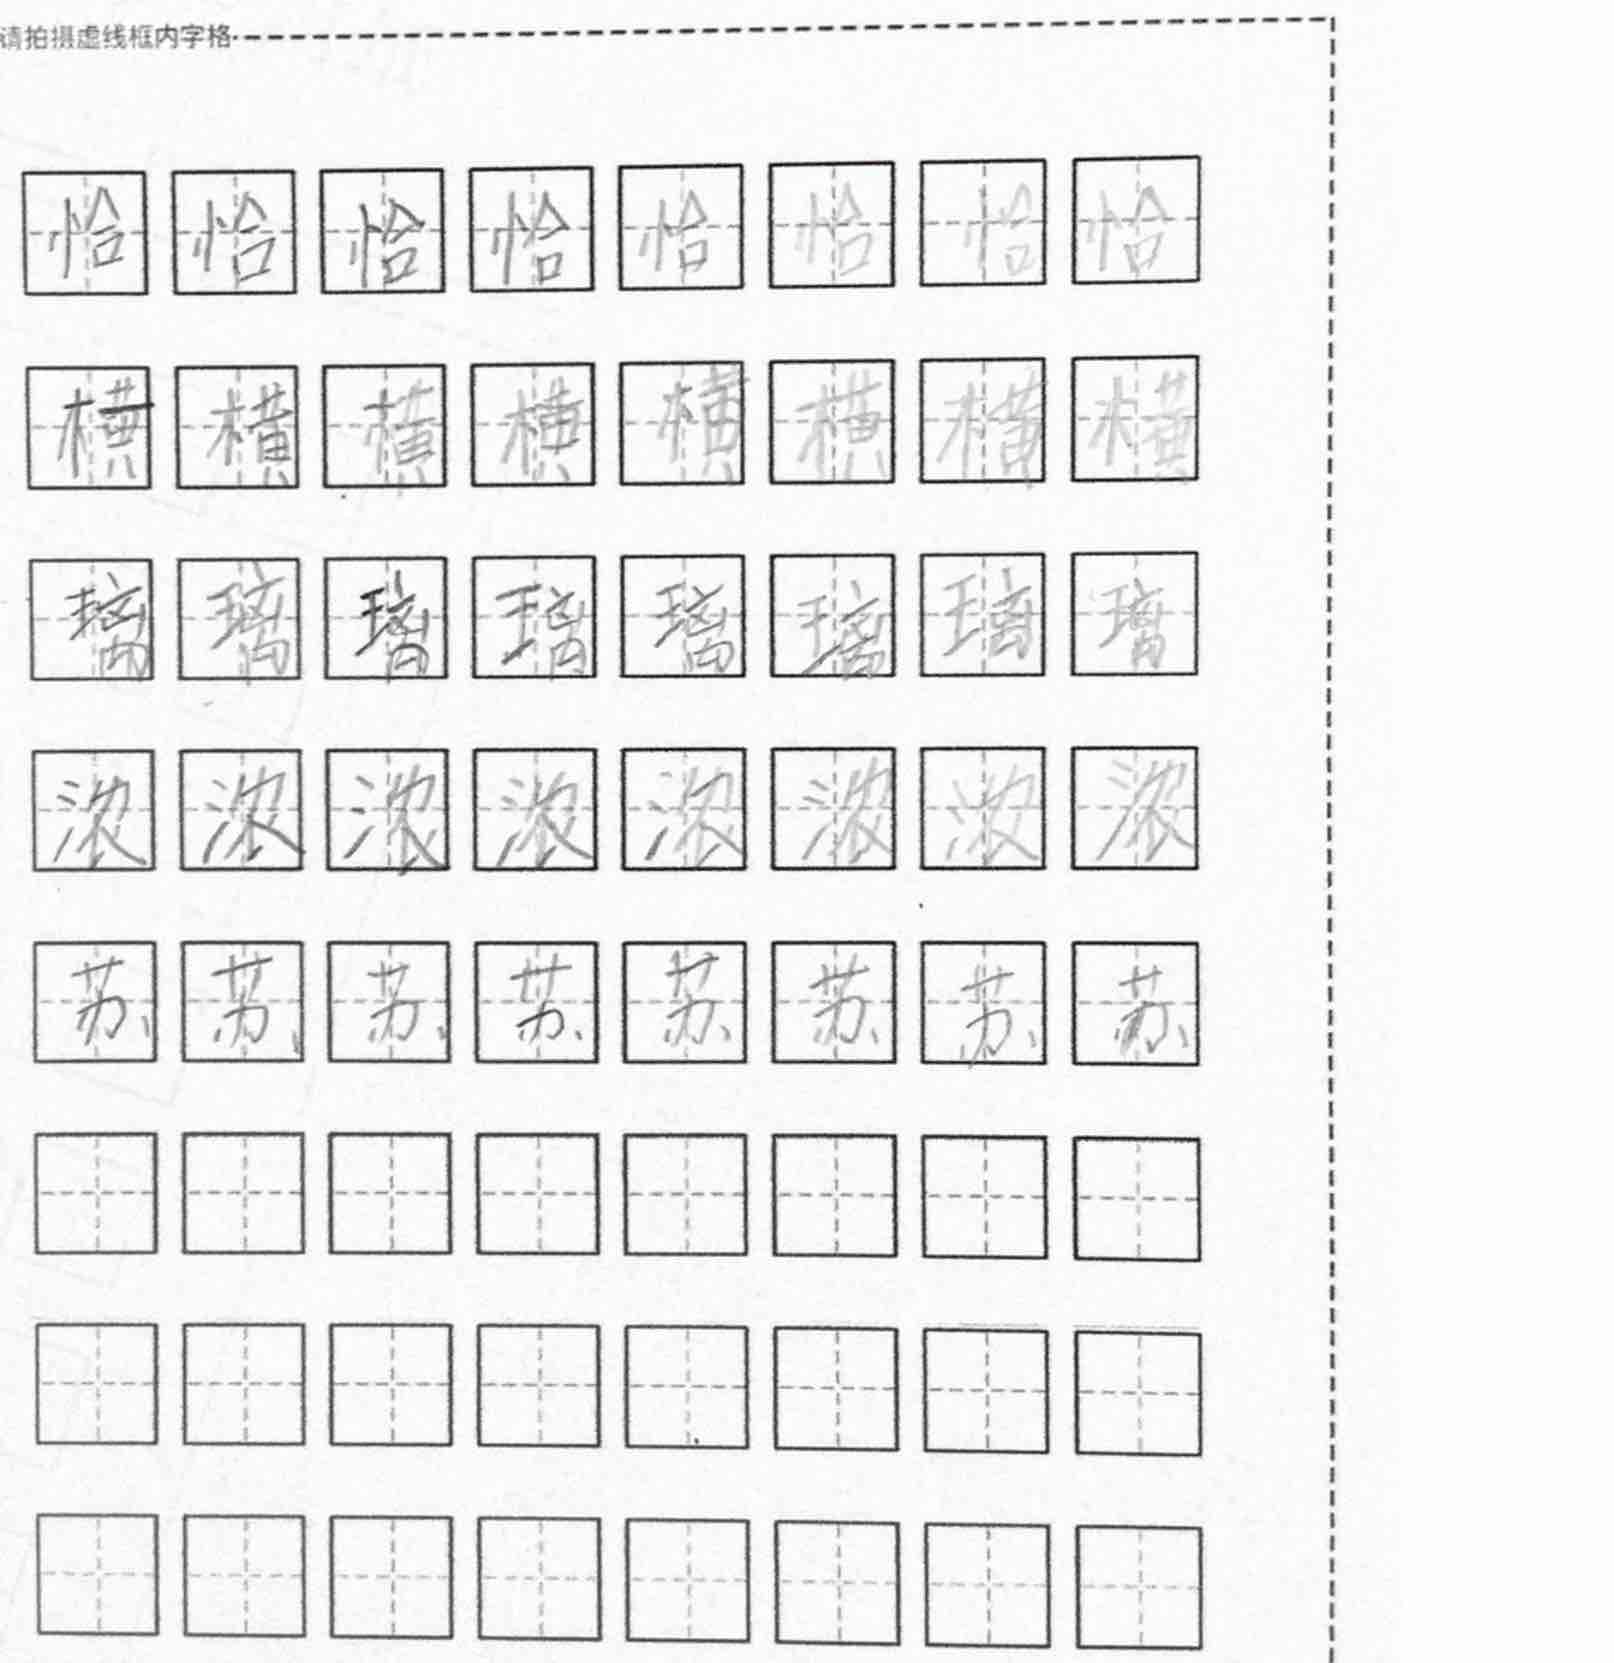 请拍摄虚线框内字格
恰恰恰恰恰恰恰恰
横横横横横横横横
璃璃璃璃璃璃璃璃
浓浓浓浓浓浓浓浓
苏苏苏苏苏苏苏苏